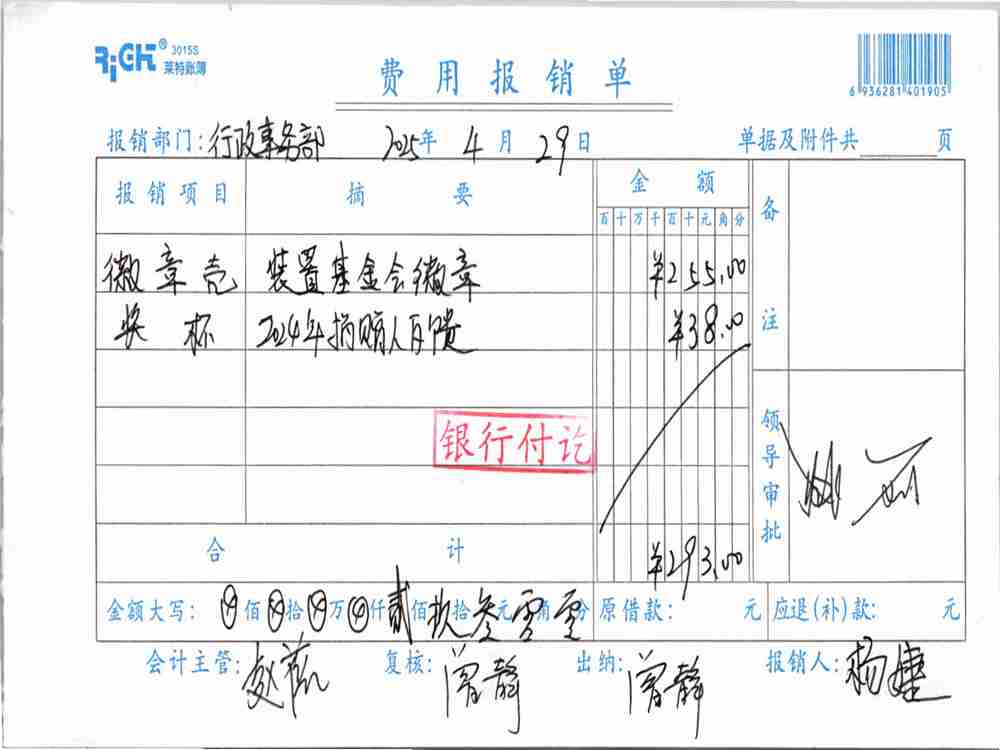 RiGHT® 3015S
莱特账簿
费用报销单
6 936281 401905
报销部门：行政事务部 2025年 4月 29日 单据及附件共 页
报销项目 摘要 金额 备注
百十万千百十元角分
徽章壳 装置基金会徽章 ¥255.00
奖杯 2024年捐赠人 ¥38.00
银行付讫
领导审批
合计 ¥293.00
金额大写：⊗佰⊗拾⊗万⊗仟贰佰玖拾叁元零角零分 原借款： 元 应退(补)款： 元
会计主管： 复核：曾静 出纳：曾静 报销人：杨捷